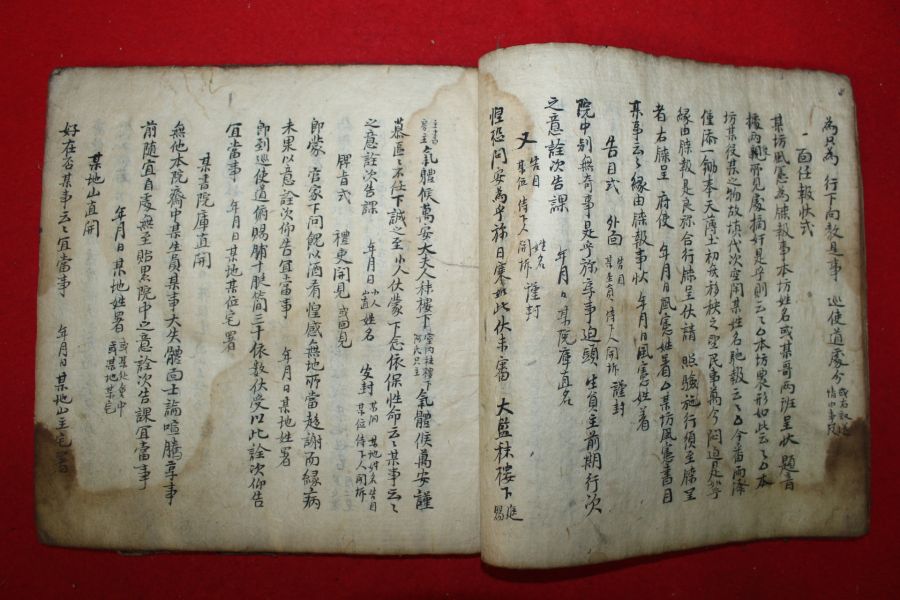 為只爲 行下向敎是事 巡使道處分
一面任報狀式
某坊風憲爲牒報事本坊姓名或某哥兩班呈狀題音
據兩 看見處摘奸是乎則云云本坊農形如此云云本
坊某役某之物故塡代次空閑某姓名馳報云云今番雨澤
僅添一鋤本天薄土初矣移秧之 民事萬分 是乎
緣由牒報是良 合行牒呈伏請 照驗施行須至牒呈
者右牒呈 府使 年月日風憲姓着 某坊風憲書目
某事云云緣由牒報事狀 年月日風憲姓着
告目式 外面 告目 某生員 侍下人開拆 謹封
院中別無奇事是乎 享事迫頭 生員主前期行次
之意詮次告課 年月日某院庫直名
又 告目 某位 侍下人開拆 姓名 謹封
惶恐問安爲乎 日寒如此伏未審 大監秣樓下
氣體候萬安大夫人秣樓下 氣體候萬安謹
慕區區不任下誠之至小人伏蒙下念依保性命云云某事云云
之意詮次告課 年月日小人姓名
牌旨式 禮吏開見 或回見
卽蒙 官家下問 以酒肴惶感無地所當趨謝而緣病
未果以此意詮次仰告宜當事 年月日某地姓署
卽到巡使道 賜脯十 簡三千依數伏受以此詮次仰告
宜當事 年月日某地某位宅署
某書院庫直開
無他本院齋中某生員某事大失體面士論喧騰享事
前隨宜自處無至貽累院中之意詮次告課宜當事
年月日某地姓署
某地山直開
好在 某事云云宜當事 年月日某地山主宅署